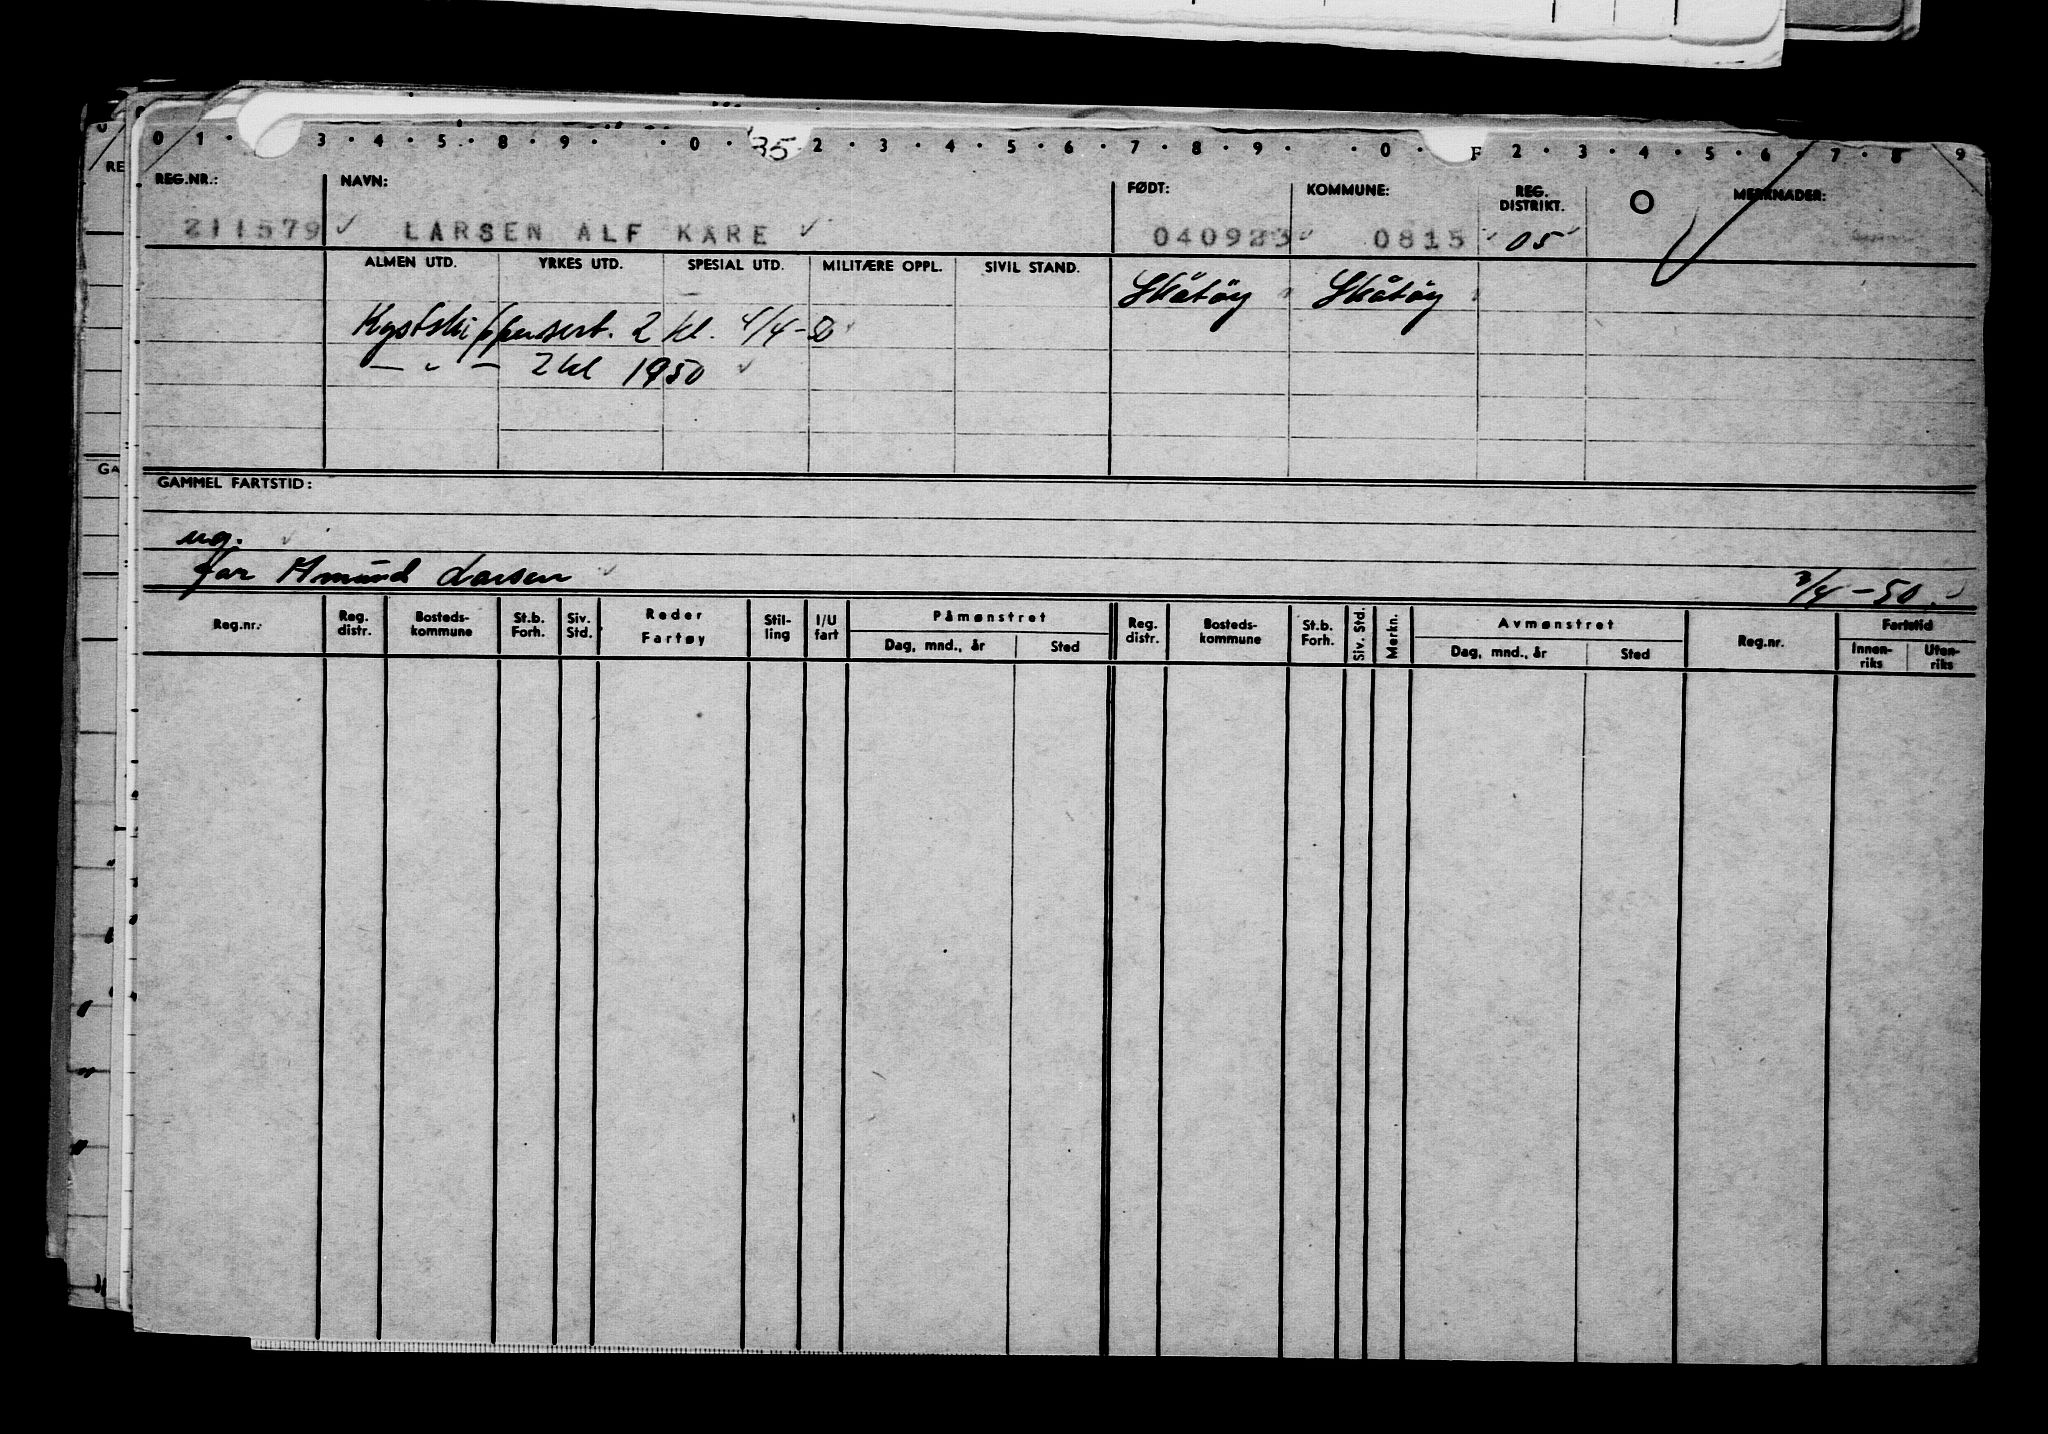 0 1 · 3 · 4 · 5 · 8 · 9 · · 0 · 35 2 · 3 · 4 · 5 · 6 · 7 · 8 · 9 · · 0 · F 2 · 3 · 4 · 5 · 6 · 7 · 8 · 9
REG.NR.: NAVN: FØDT: KOMMUNE: REG. DISTRIKT. O MERKNADER:
211579 LARSEN ALF KARE 040923 0815 05
ALMEN UTD. YRKES UTD. SPESIAL UTD. MILITÆRE OPPL. SIVIL STAND.
Skåtöy Skåtöy
Kystskippersert. 2 kl. 4/4-
— " — 2 kl 1950
GAMMEL FARTSTID:
ug.
far Amund Larsen 3/4-50.
Reg.nr. Reg. distr. Bosteds-kommune St.b. Forh. Siv. Std. Reder Fartøy Stil-ling I/U fart Påmønstret Reg. distr. Bosteds-kommune St.b. Forh. Siv. Std. Merkn. Avmønstret Reg.nr. Fartstid
Dag, mnd., år Sted Dag, mnd., år Sted Innen-riks Uten-riks
RE
GA